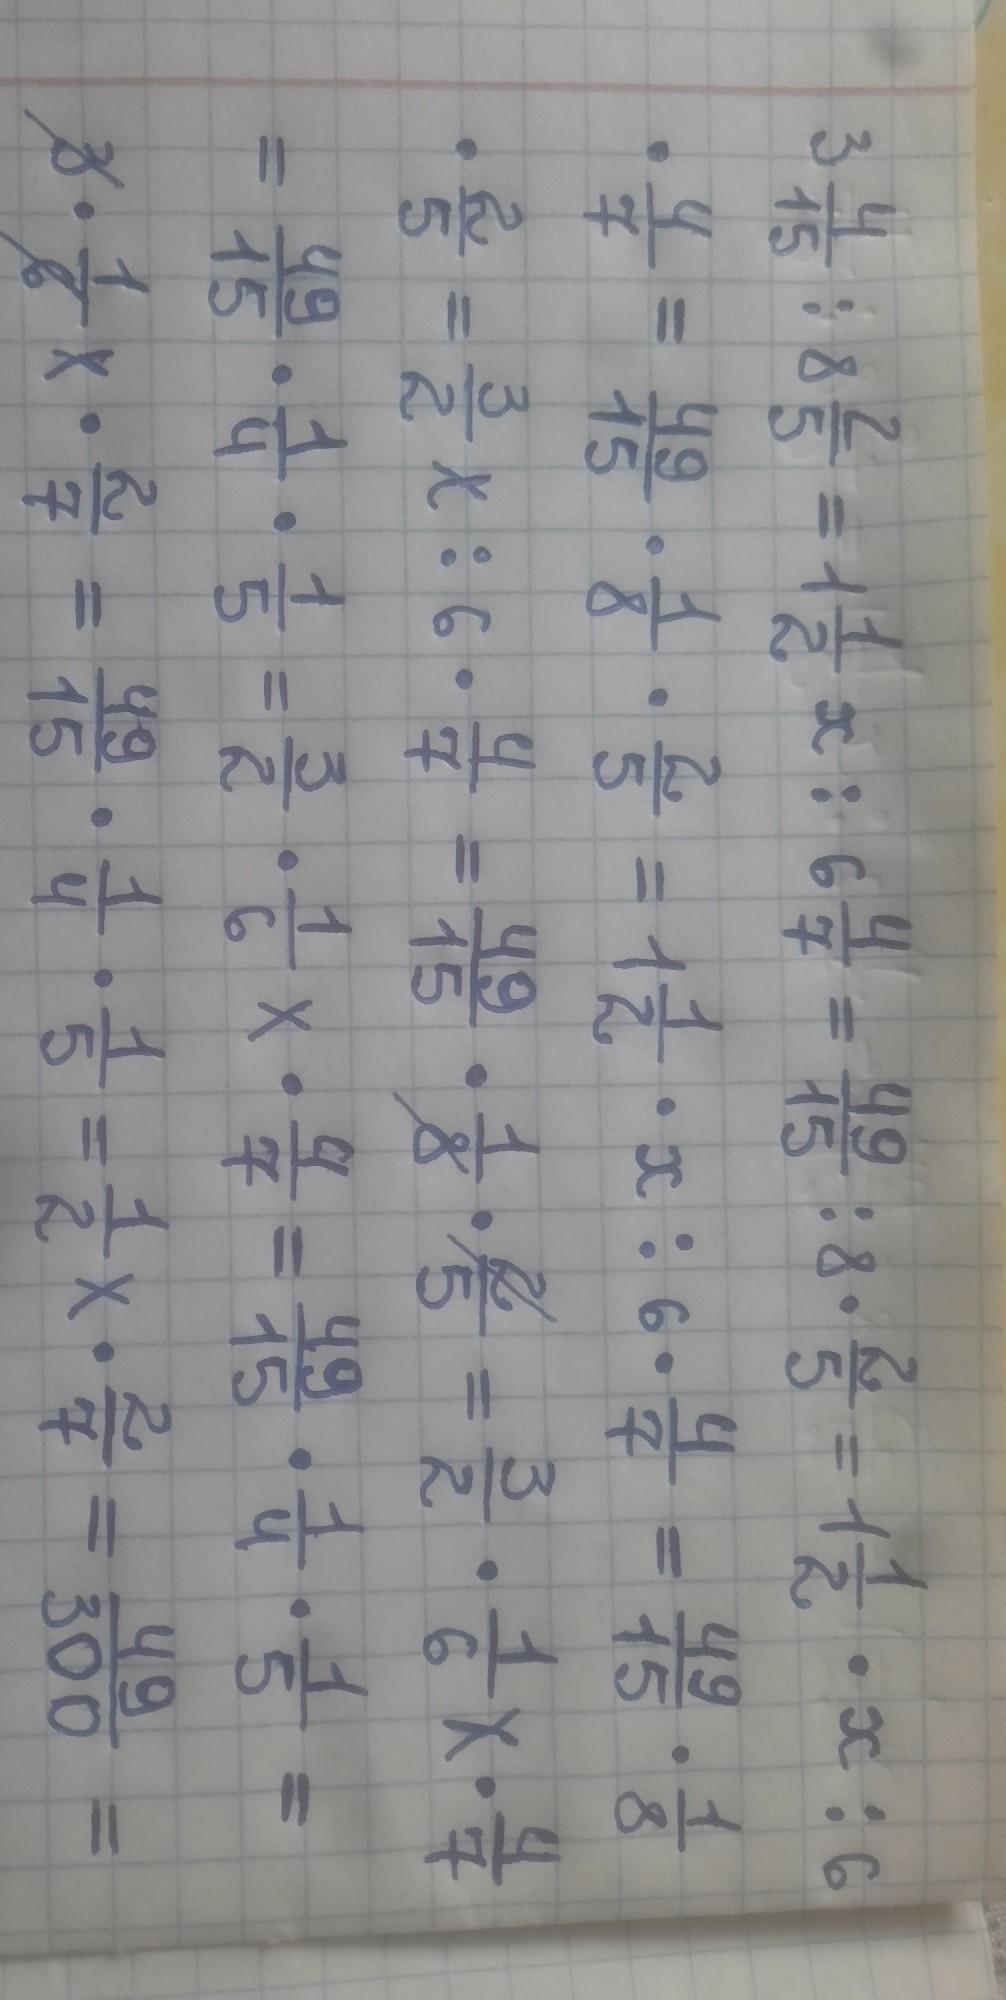 3 4/15 : 8 2/5 = 1 1/2 x : 6 4/7 = 49/15 : 8 · 2/5 = 1 1/2 · x : 6
· 4/7 = 49/15 · 1/8 · 2/5 = 1 1/2 · x : 6 · 4/7 = 49/15 · 1/8
· 2/5 = 3/2 x : 6 · 4/7 = 49/15 · 1/8 · 2/5 = 3/2 · 1/6 x · 4/7
= 49/15 · 1/4 · 1/5 = 3/2 · 1/6 x · 4/7 = 49/15 · 1/4 · 1/5 =
3 · 1/6 x · 2/7 = 49/15 · 1/4 · 1/5 = 1/2 x · 2/7 = 49/300 =